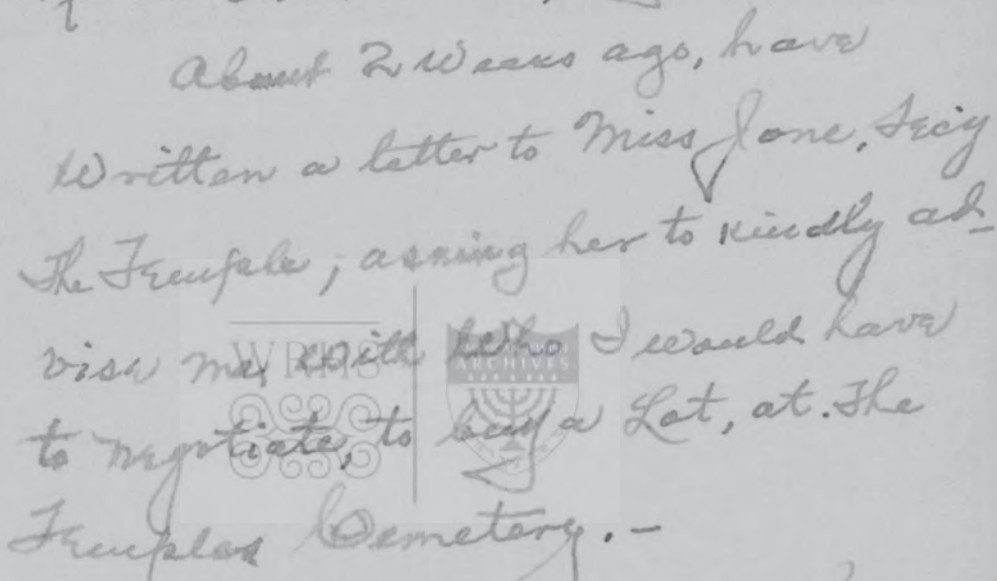 About 2 Weeks ago, have
Written a letter to Miss Jone, Sec'y
The Temple, asking her to kindly ad-
vise me, with Who I would have
to negotiate, to buy a Lot, at. The
Temples Cemetery. -
WRHS
ARCHIVES